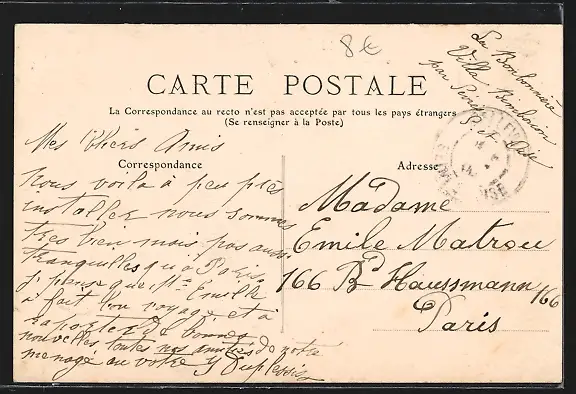 8€
La Bonbonnière
Villa
par
S. et Oise
CARTE POSTALE
La Correspondance au recto n'est pas acceptée par tous les pays étrangers
(Se renseigner à la Poste)
Mes Chers Amis
Correspondance
Adresse
Nous voilà à peu près
installer nous sommes
très bien mais pas aussi
tranquilles qu'à Paris,
je pense que Mr Emile
a fait bon voyage et à
rapporter de bonnes
nouvelles toutes nos amitiés de notre
menage au votre Duplessis
Madame
Emile Matrou
166 Bd Haussmann 166
Paris